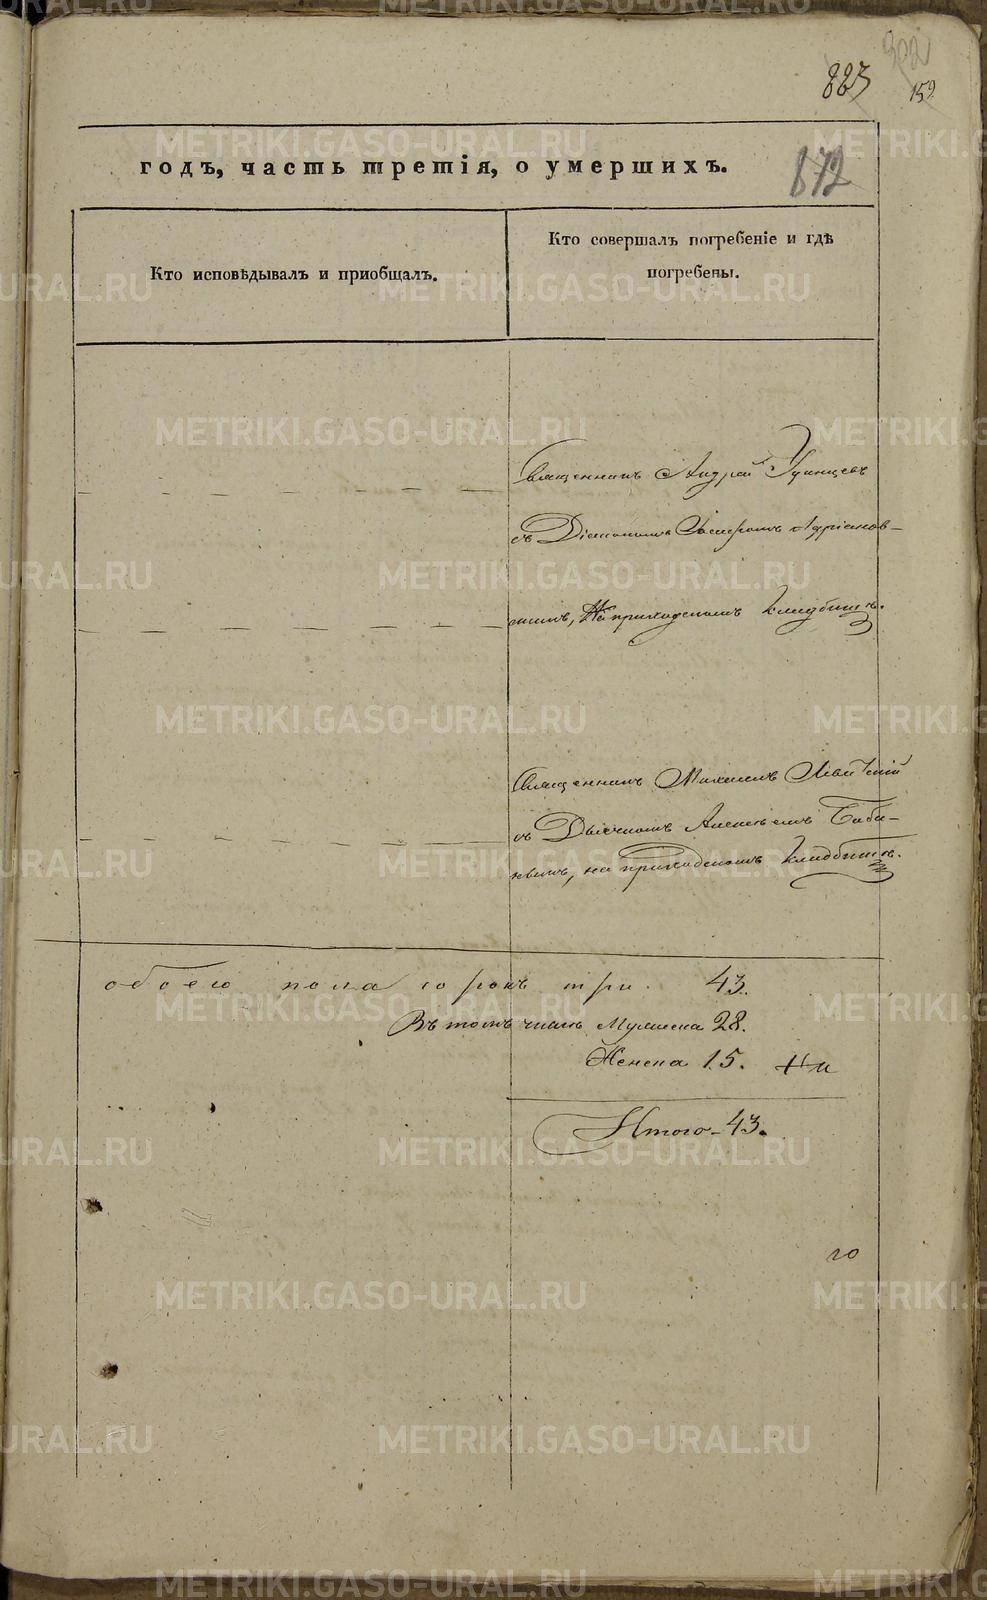 823
302
159
годъ, часть третія, о умершихъ.
872
Кто исповѣдывалъ и приобщалъ.
Кто совершалъ погребеніе и гдѣ
погребены.
Священникъ Андрей Удинцевъ
съ Діакономъ Іосифомъ Адріанов-
скимъ, На приходскомъ кладбищѣ.
Священникъ Михаилъ Левитскій
съ Дьячкомъ Алексѣемъ Баби-
новымъ, на приходскомъ кладбищѣ.
обоего пола сорокъ три. 43.
Въ томъ числѣ Мужеска 28.
Женска 15.
Итого - 43.
METRIKI.GASO-URAL.RU